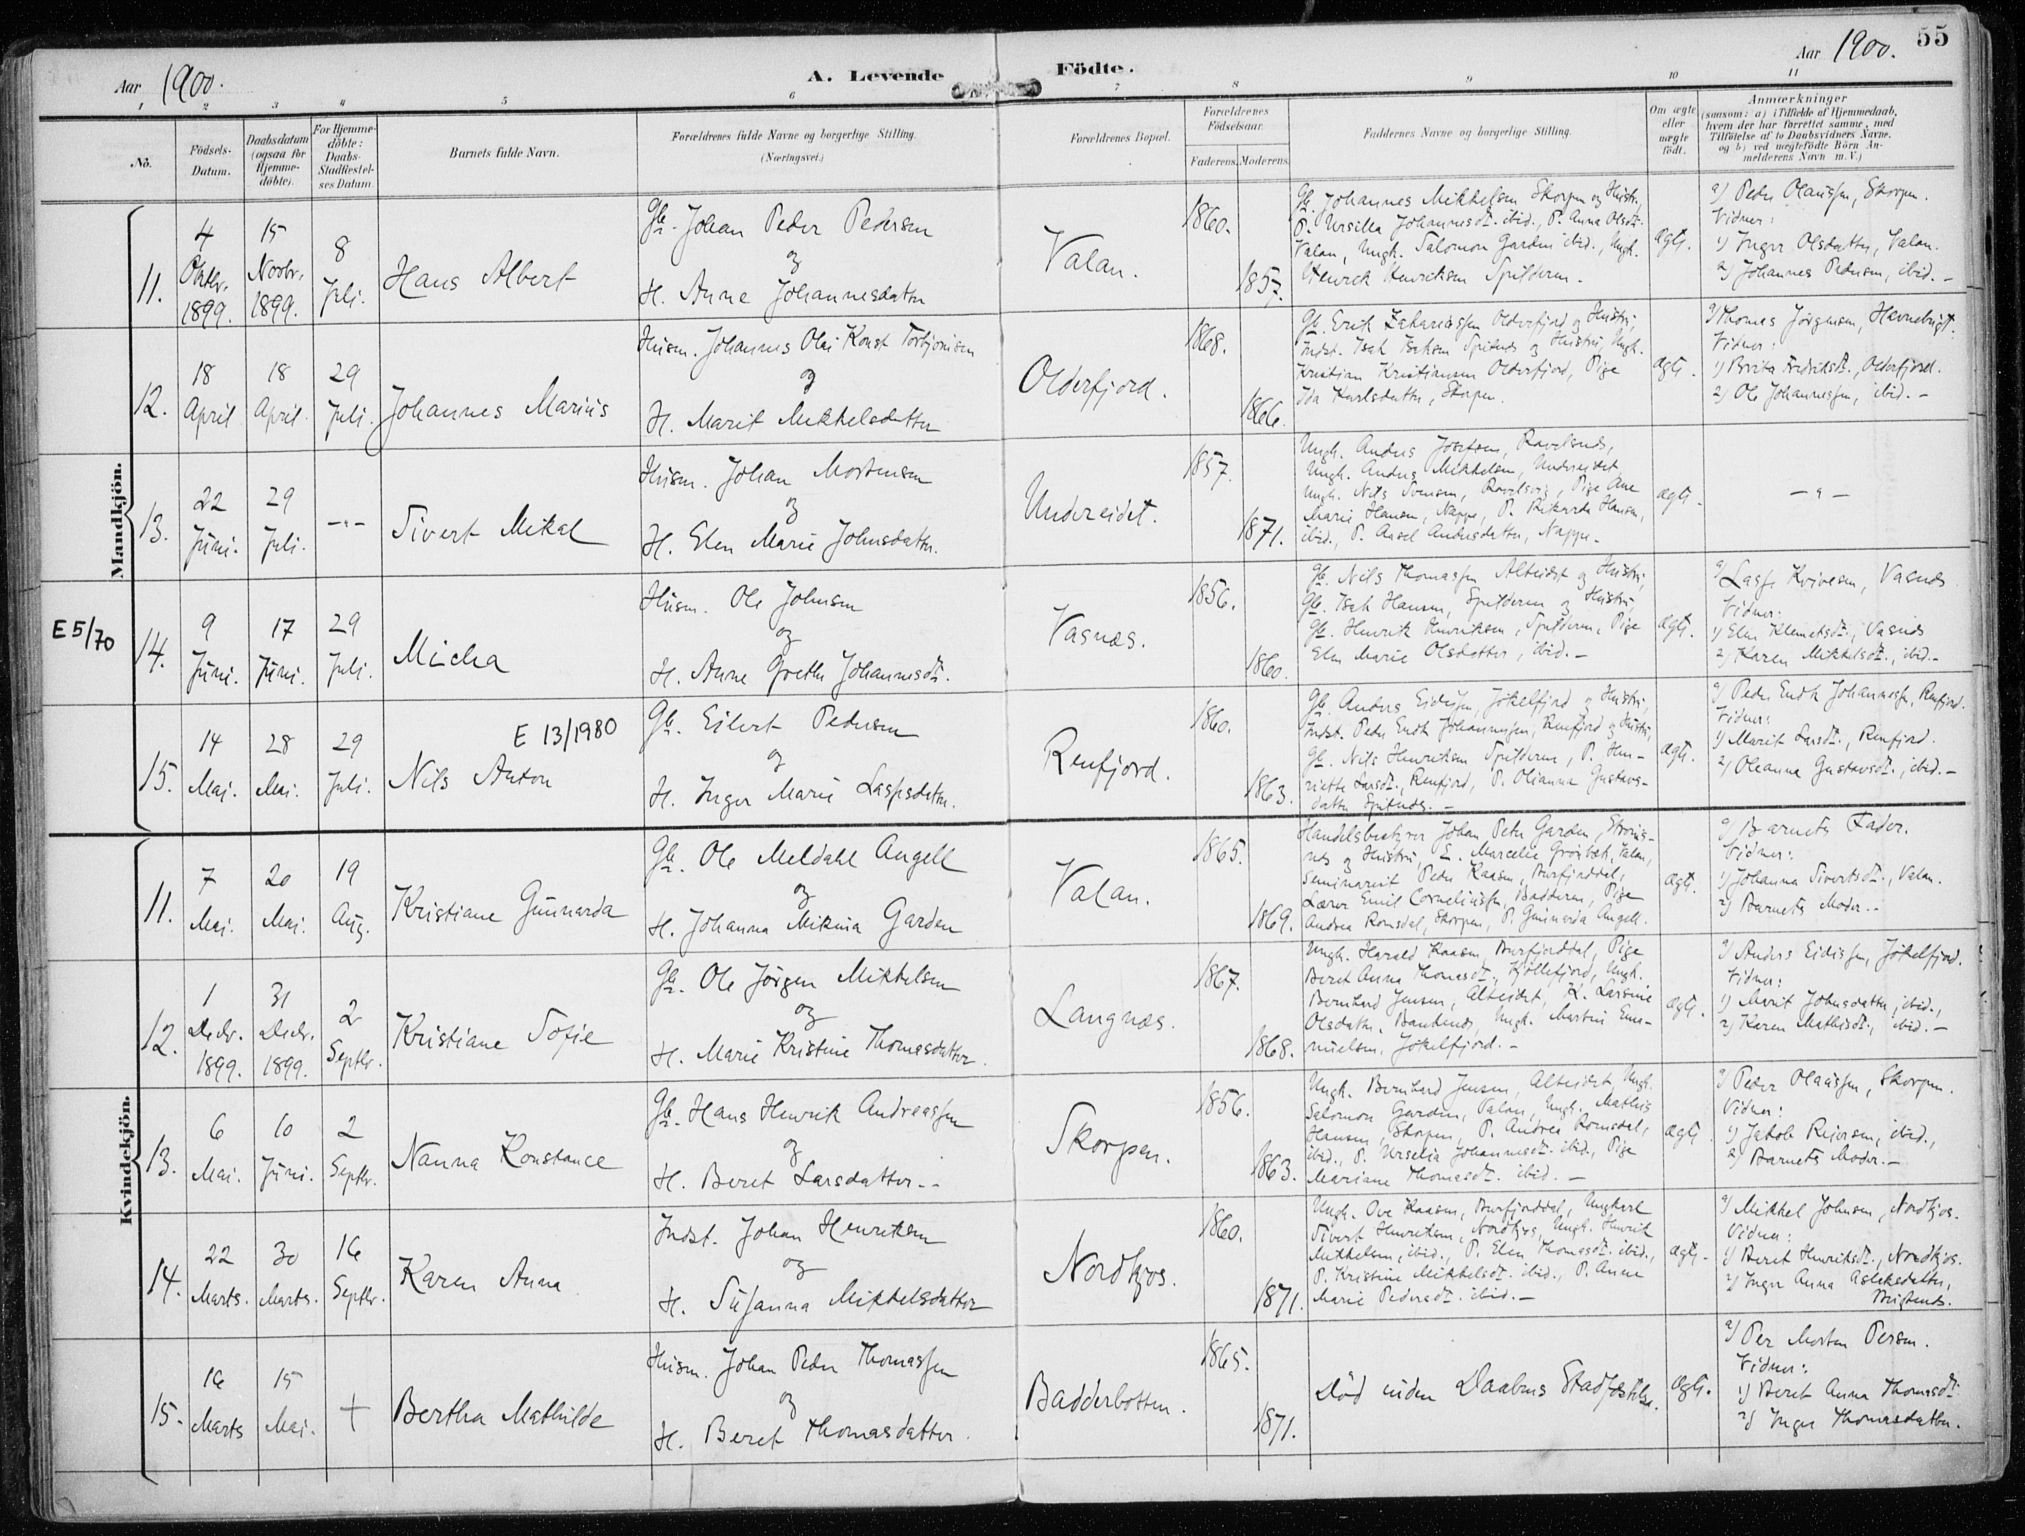 Aar 1900.
A. Levende Födte.
Aar 1900. 55
1 2 3 4 5 6 7 8 9 10 11
No.
Födsels-
Datum.
Daabsdatum
(ogsaa for
Hjemme-
döbte).
For Hjemme-
döbte:
Daabs-
Stadfæstel-
ses Datum
Barnets fulde Navn.
Forældrenes fulde Navne og borgerlige Stilling.
(Næringsvei.)
Forældrenes Bopæl.
Forældrenes
Födselsaar.
Faderens. Moderens.
Faddernes Navne og borgerlige Stilling.
Om ægte
eller
uægte
födt.
Anmærkninger
(saasom: a) i Tilfælde af Hjemmedaab,
hvem der har forrettet samme, med
Tilföielse af to Daabsvidners Navne.
og b) ved uægtefödte Börn An-
melderens Navn m. V.)
Mandkjön.
11.
4
Oktbr.
1899.
15
Novbr.
1899.
8
Juli.
Hans Albert
Gb. Johan Peder Pedersen
og
H. Anne Johannesdatter
Valan.
1860.
1857.
Gb. Johannes Mikkelsen Skorpen og Hustru,
P. Ursilla Johannesdt. ibid., P. Anna Olsdt.
Valan, Ungk. Salomon Garden ibid., Ungk.
Henrick Henricksen Spilderen.
ægte.
a) Peder Olaussen, Skorpen.
Vidner:
1) Inger Olsdatter, Valan.
2) Johannes Pedersen, ibid. –
12.
18
April
18
April.
29
Juli.
Johannes Marius
Husm. Johannes Olai Konst Torbjönsen
og
H. Marit Mikkelsdatter
Olderfjord.
1868.
1866.
Gb. Erik Zakariassen Olderfjord og Hustru,
Indst. Isak Isaksen Spilnes og Hustru, Ungk.
Kristian Kristiansen Olderfjord, Pige
Ida Karlsdatter, Skorpen.
ægte.
a) Thomas Jörgensen, Havnebugt.
Vidner:
1) Brita Fredriksdt., Olderfjord.
2) Ole Johannessen, ibid. –
13.
22
Juni.
29
Juli.
–"–
Sivert Mikal
Husm. Johan Mortensen
og
H. Elen Marie Johnsdatter.
Undereidet.
1857.
1871.
Ungk. Anders Mikkelsen, Undereidet
Marie Hansen, Nappe, P. Rikarda Hansen,
ibid., P. Ansel Andersdatter, Nappe. –
ægte.
–"–
E 5/70
14.
9
Juni.
17
Juni.
29
Juli.
Micha
Husm. Ole Johnsen
og
H. Anne Grethe Johannesdt.
Vasnæs.
1856.
1860.
Gb. Nils Thomassen Alteidet og Hustru,
Gb. Isak Hansen, Spilderen og Hustru,
Gb. Henrik Henriksen, Spilderen, Pige
Elen Marie Olsdatter, ibid. –
ægte.
a) Lasse Kvivesen, Vasnes
Vidner:
1) Elen Klemetsdt., Vasnes
2) Karen Mikkelsdt., ibid. –
15.
14
Mai.
28
Mai.
29
Juli.
E 13/1980
Nils Anton
Gb. Eilert Pedersen
og
H. Inger Marie Lassesdatter.
Renfjord.
1860.
1863.
Gb. Anders Eidissen, Jökelfjord og Hustru,
Indst. Peder Endk Johannessen, Renfjord og Hustru,
Gb. Nils Henriksen Spilderen, P. Hen-
riette Larsdt., Renfjord, P. Olianna Gustavs-
datter Spilnes. –
ægte.
a) Peder Endk Johannessen, Renfjord.
Vidner:
1) Marit Larsdt., Renfjord.
2) Oleanna Gustavsdt., ibid. –
Kvindekjön.
11.
7
Mai.
20
Mai.
19
Aug.
Kristiane Gunnarda
Gb. Ole Meldahl Angell
og
H. Johanna Mikuia Garden
Valan.
1865.
1869.
Handelsbestyrer Johan Peter Garden, Strøms-
nes og Hustru, E. Marcelie Grönbek, Valan,
Seminarist Peder Kaasen, Burfjorddal,
Lærer Emil Corneliussen, Badderen, Pige
Andrea Romsdal, Skorpen, P. Gunnarda Angell.
ægte.
a) Barnets Fader.
Vidner:
1) Johanna Sivertsdt., Valan.
2) Barnets Moder. –
12.
1
Decbr.
1899.
31
Decbr.
1899.
2
Septbr.
Kristiane Sofie
Gb. Ole Jörgen Mikkelsen
og
H. Marie Kristine Thomasdatter.
Langnæs.
1867.
1868.
Ungk. Harald Kaasen, Burfjorddal, Pige
Beret Anna Thomasdt., Kjöllefjord, Ungk.
Bernhard Jensen, Alteidet, K. Larsine
Olsdatter, Baukenes, Ungk. Martin Ema-
nuelsen, Jökelfjord. –
ægte.
a) Anders Eidissen, Jökelfjord.
Vidner:
1) Marit Johnsdatter, ibid.,
2) Karen Mathisdt., ibid. –
13.
6
Mai.
10
Juni.
2
Septbr.
Nanna Konstance
Gb. Hans Henrik Andreassen
og
H. Beret Larsdatter. –
Skorpen.
1856.
1863.
Ungk. Bernhard Jensen, Alteidet, Ungk.
Salomon Garden, Valan, Ungk. Mathis
Hansen, Skorpen, P. Andrea Romsdal,
ibid., P. Urselia Johannesdt. ibid., Pige
Mariane Thomasdt. ibid. –
ægte.
a) Peder Olaussen, Skorpen.
Vidner:
1) Jakob Reiersen, ibid.,
2) Barnets Moder. –
14.
22
Marts.
30
Marts.
16
Septbr.
Karen Anna
Indst. Johan Henriksen
og
H. Susanna Mikkelsdatter
Nordkjos.
1860.
1871.
Ungk. Ove Kaasen, Burfjorddal, Ungkarl
Sivert Henriksen, Nordkjos, Ungk. Henrik
Mikkelsen, ibid., P. Elen Thomasdt. ibid.,
P. Kristine Mikkelsdt. ibid., P. Anne
Marie Pedersdt. ibid. –
ægte. –
a) Mikkel Johnsen, Nordkjos.
Vidner:
1) Beret Henriksdt., Nordkjos.
2) Inger Anna Aslaksdatter,
15.
16
Marts
15
Mai.
+
Bertha Mathilde
Husm. Johan Peder Thomassen
og
H. Beret Thomasdatter.
Badderbotten.
1865.
1871.
Död uden Daabens Stadfæstelse.
ægte.
a) Per Morten Persen.
Vidner:
1) Beret Anna Thomasdt.
2) Inger Thomasdatter.